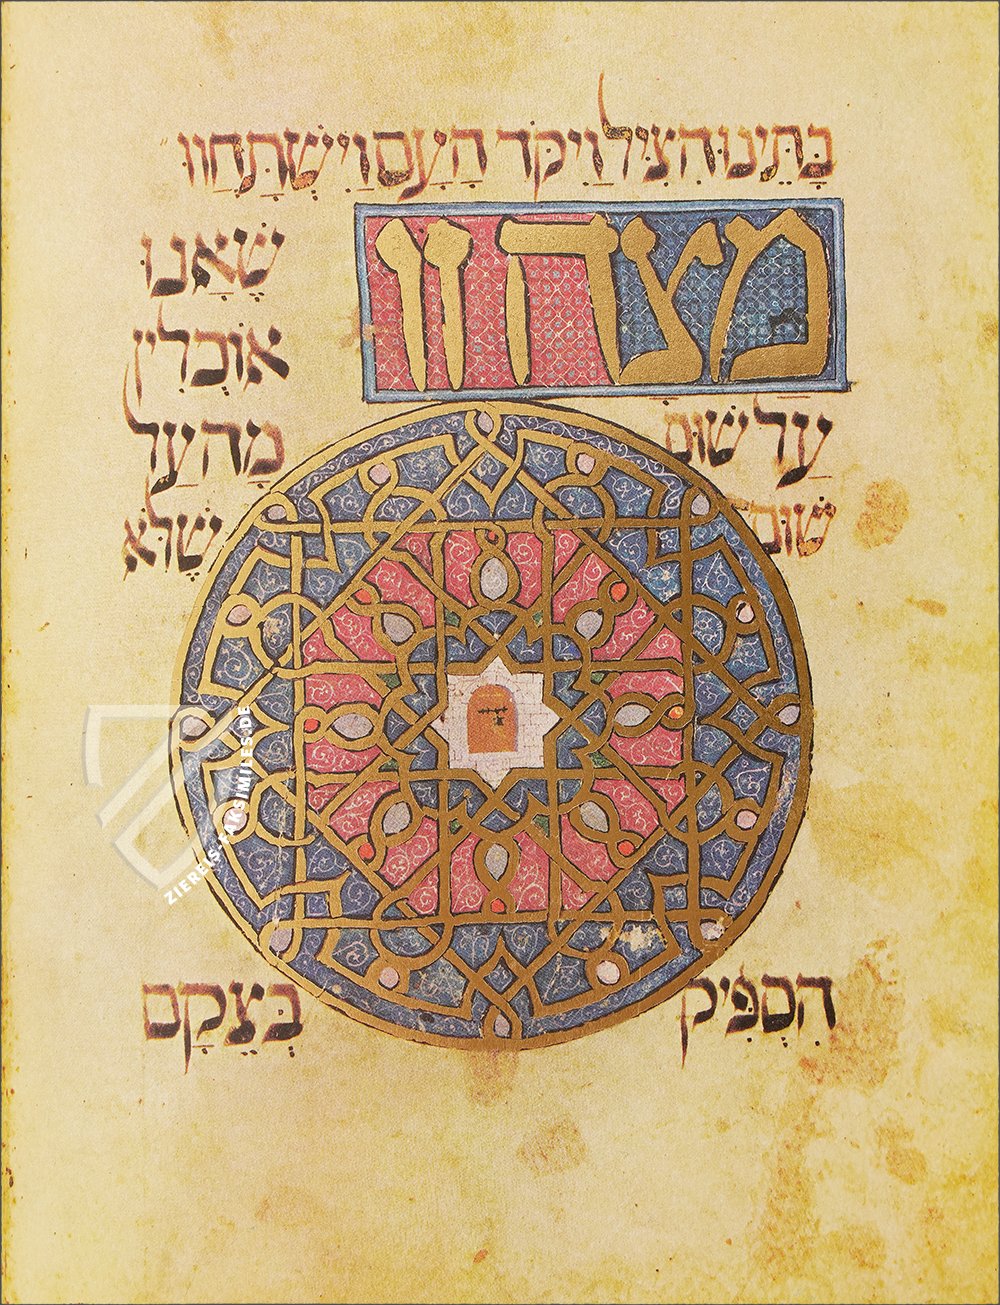 בָּתֵּינוּ הִצִּיל וַיִּקֹּד הָעָם וַיִּשְׁתַּחֲווּ
מצה זו שֶׁאָנוּ
אוֹכְלִין
עַל שׁוּם מַה עַל
שׁוּם שֶׁלֹּא
הִסְפִּיק בְּצֵקָם
ZIEREIS-FAKSIMILES.DE